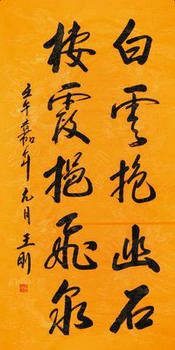 白雲抱幽石
棲霞挹飛泉
壬午嘉年元月王刚